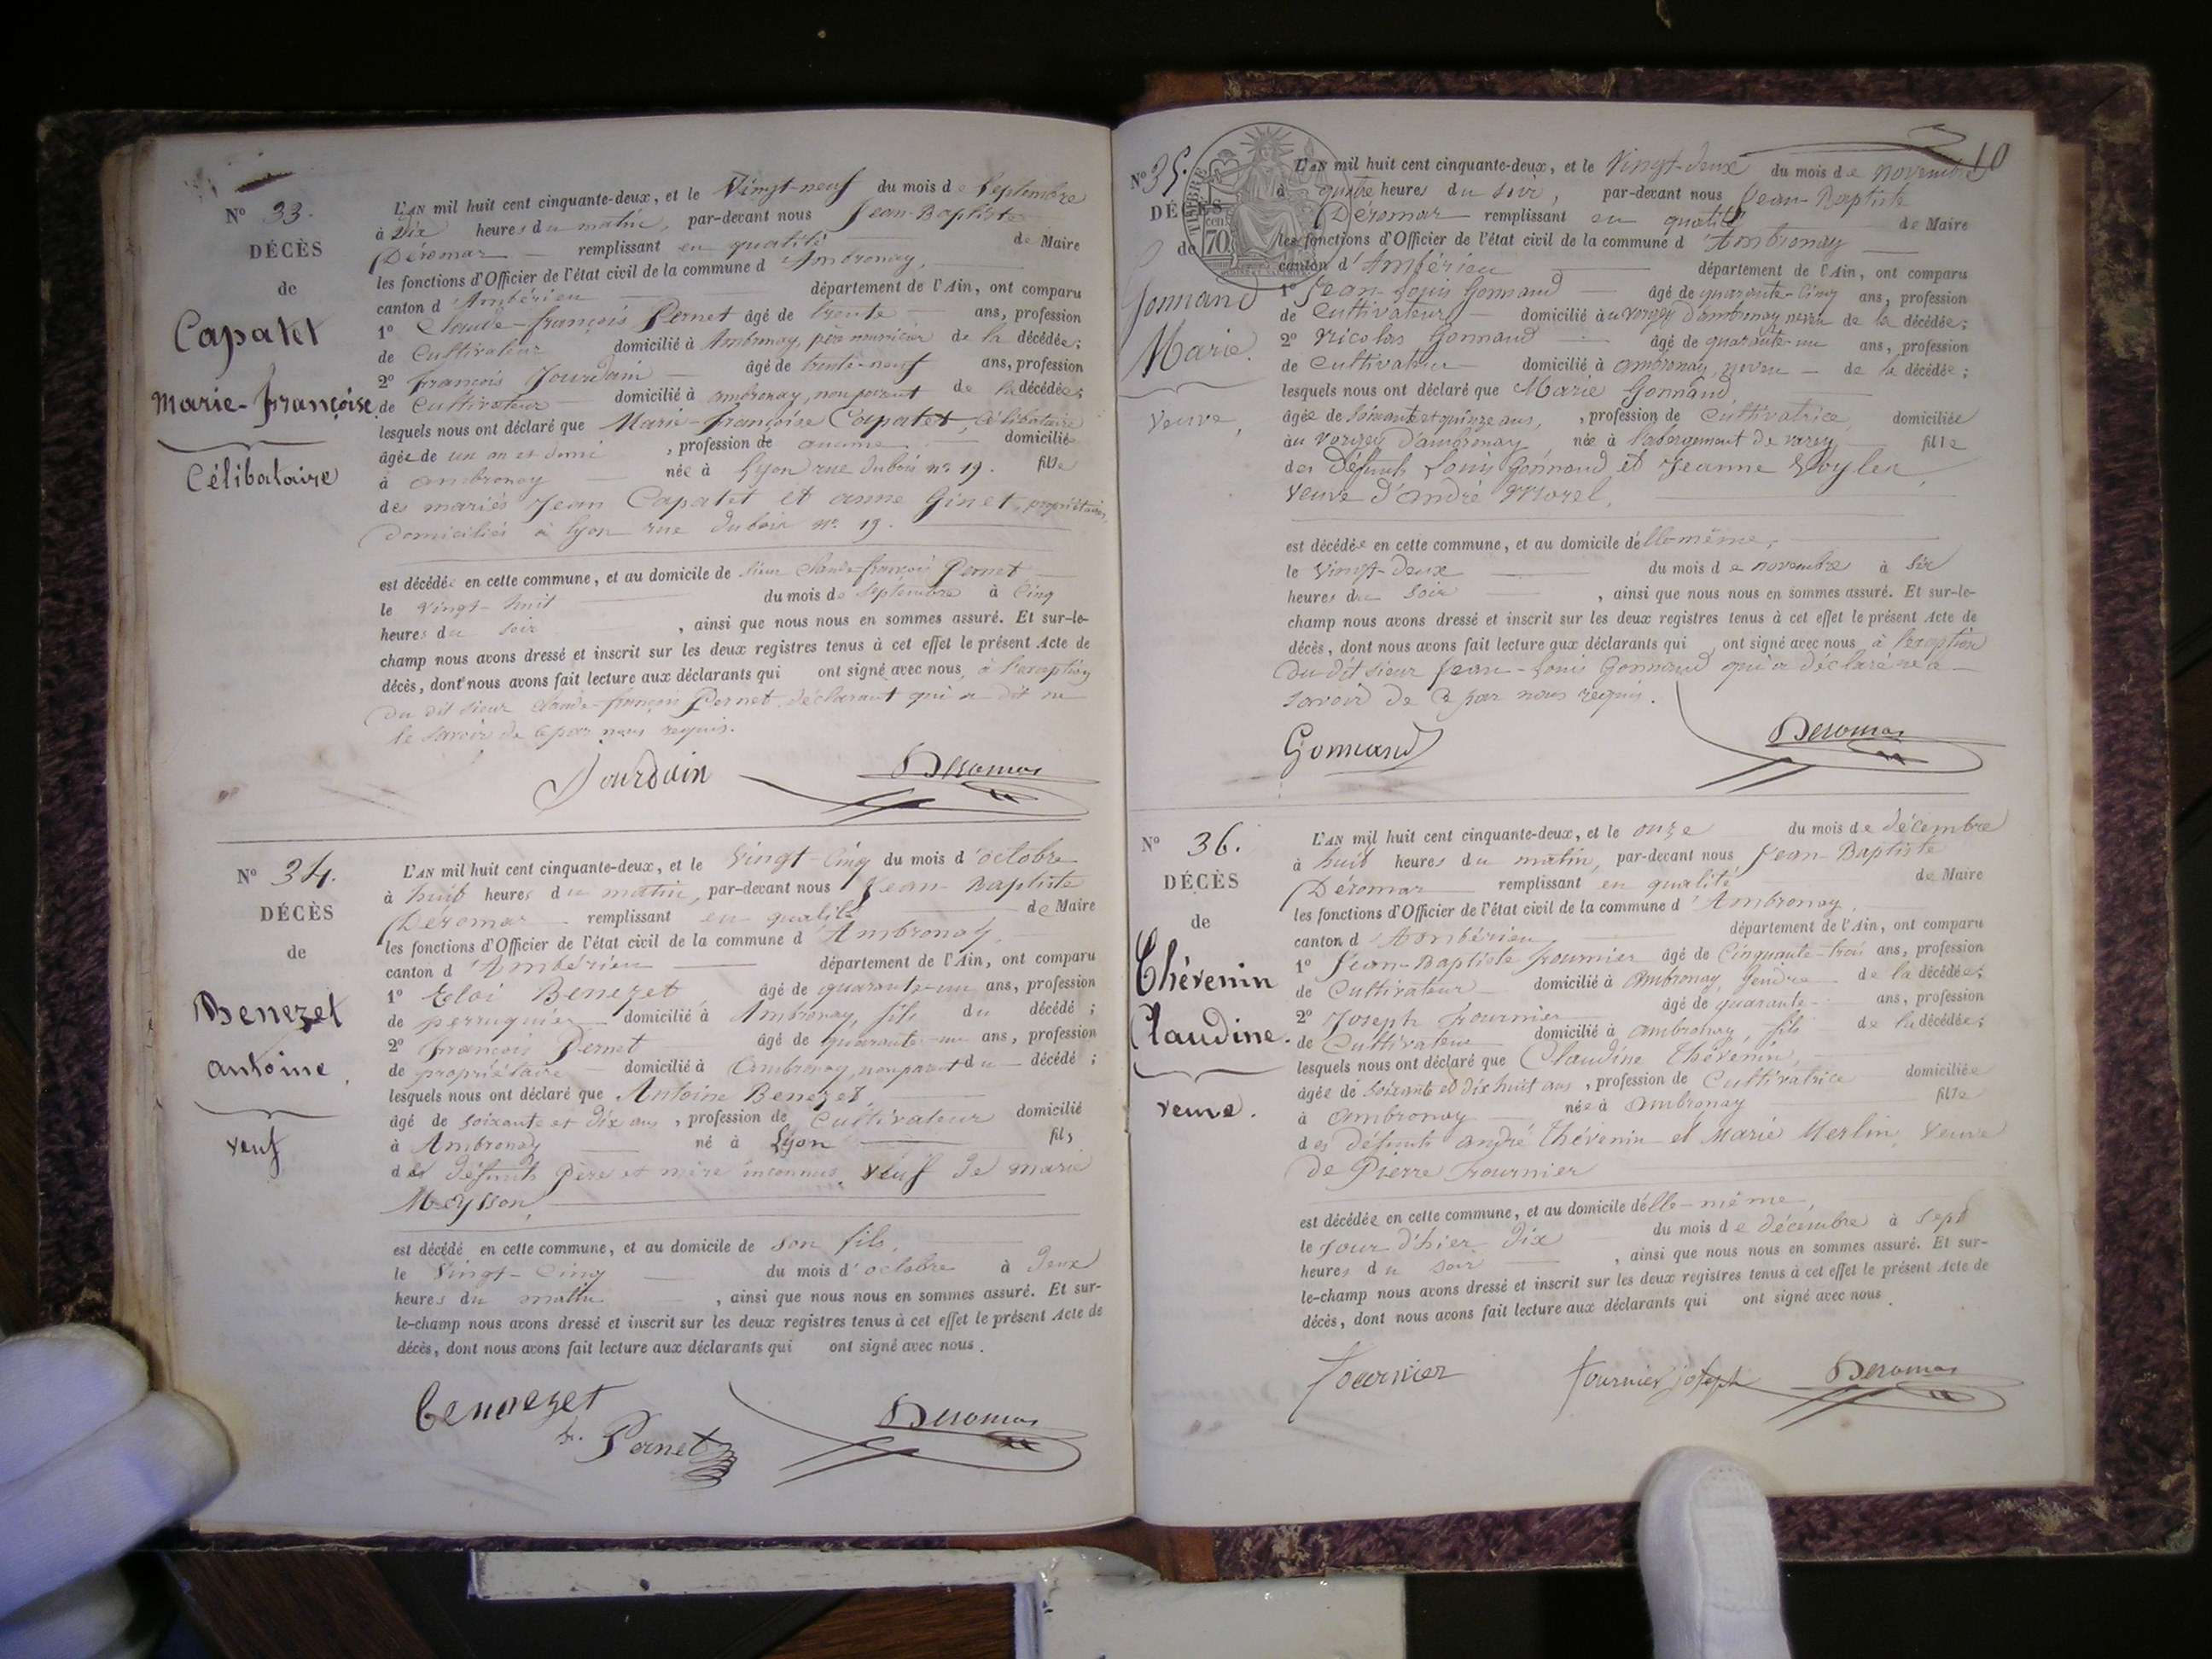 N° 33.
DÉCÈS
de
Capatet
Marie-françoise
Célibataire
L'AN mil huit cent cinquante-deux, et le Vingt-neuf du mois de Septembre
à Dix heures du matin, par-devant nous Jean-Baptiste
Déromas remplissant en qualité de Maire
les fonctions d'Officier de l'état civil de la commune d'Ambronay,
canton d'Ambérieu département de l'Ain, ont comparu
1° Claude-françois Pernet âgé de trente ans, profession
de Cultivateur domicilié à Ambronay, père nourricier de la décédée;
2° françois Jourdain âgé de trente-neuf ans, profession
de Cultivateur domicilié à ambronay, non parent de la décédée;
lesquels nous ont déclaré que Marie-françoise Capatet, Célibataire
âgée de un an et demi, profession de aucune domiciliée
à ambronay née à Lyon rue dubois n° 19. fille
des mariés Jean Capatet et anne Ginet, propriétaires,
domiciliés à lyon rue dubois n° 19.
est décédée en cette commune, et au domicile de sieur Claude-françois Pernet
le vingt-huit du mois de Septembre à Cinq
heures du soir, ainsi que nous nous en sommes assuré. Et sur-le-
champ nous avons dressé et inscrit sur les deux registres tenus à cet effet le présent Acte de
décès, dont nous avons fait lecture aux déclarants qui ont signé avec nous, à l'exception
du dit sieur Claude-françois Pernet, déclarant qui a dit ne
le savoir de ce par nous requis.
Jourdain Deromas
N° 34.
DÉCÈS
de
Benezet
antoine,
veuf
L'AN mil huit cent cinquante-deux, et le Vingt-Cinq du mois d'octobre
à huit heures du matin, par-devant nous Jean-Baptiste
Deromas remplissant en qualité de Maire
les fonctions d'Officier de l'état civil de la commune d'Ambronay,
canton d'Ambérieu département de l'Ain, ont comparu
1° Eloi Benezet âgé de quarante-un ans, profession
de perruquier domicilié à Ambronay, fils du décédé;
2° françois Pernet âgé de quarante-un ans, profession
de propriétaire domicilié à Ambronay, non parent du décédé;
lesquels nous ont déclaré que Antoine Benezet,
âgé de soixante et dix ans, profession de Cultivateur domicilié
à Ambronay né à Lyon fils
des défunts père et mère inconnus, veuf de marie
Meysson,
est décédé en cette commune, et au domicile de son fils,
le Vingt-Cinq du mois d'octobre à Deux
heures du matin, ainsi que nous nous en sommes assuré. Et sur-
le-champ nous avons dressé et inscrit sur les deux registres tenus à cet effet le présent Acte de
décès, dont nous avons fait lecture aux déclarants qui ont signé avec nous.
Benezet
fr. Pernet Deromas
10
N° 35.
DÉCÈS
de
Gonnand
Marie.
Veuve,
TIMBRE
70
L'AN mil huit cent cinquante-deux, et le Vingt-deux du mois de novembre
à quatre heures du soir, par-devant nous Jean-Baptiste
Déromas remplissant en qualité de Maire
les fonctions d'Officier de l'état civil de la commune d'Ambronay
canton d'Ambérieu département de l'Ain, ont comparu
1° Jean-Louis Gonnand âgé de quarante-Cinq ans, profession
de Cultivateur domicilié au vorgey d'ambronay neveu de la décédée;
2° Nicolas Gonnand âgé de quarante-un ans, profession
de Cultivateur domicilié à ambronay, neveu de la décédée;
lesquels nous ont déclaré que Marie Gonnand
âgée de soixante et quinze ans, profession de Cultivatrice, domiciliée
au vorgey d'ambronay née à l'abergement de varey fille
des Défunts Louis Gonnand et Jeanne
Veuve d'andré Morel,
est décédée en cette commune, et au domicile d'elle-même,
le vingt-deux du mois de novembre à six
heures du soir, ainsi que nous nous en sommes assuré. Et sur-le-
champ nous avons dressé et inscrit sur les deux registres tenus à cet effet le présent Acte de
décès, dont nous avons fait lecture aux déclarants qui ont signé avec nous à l'exception
du dit sieur Jean-Louis Gonnand qui a déclaré ne
savoir de ce par nous requis.
Gonnand Deromas
N° 36.
DÉCÈS
de
Thévenin
Claudine.
veuve.
L'AN mil huit cent cinquante-deux, et le onze du mois de décembre
à huit heures du matin, par-devant nous Jean-Baptiste
Déromas remplissant en qualité de Maire
les fonctions d'Officier de l'état civil de la commune d'Ambronay,
canton d'Ambérieu département de l'Ain, ont comparu
1° Jean-Baptiste fournier âgé de Cinquante-trois ans, profession
de Cultivateur domicilié à Ambronay, Gendre de la décédée;
2° Joseph fournier âgé de quarante ans, profession
de Cultivateur domicilié à ambronay, fils de la décédée;
lesquels nous ont déclaré que Claudine Thévenin,
âgée de soixante et dix huit ans, profession de Cultivatrice domiciliée
à Ambronay née à Ambronay fille
des défunts andré Thévenin et Marie Merlin, veuve
de Pierre fournier
est décédée en cette commune, et au domicile d'elle-même,
le jour d'hier dix du mois de décembre à sept
heures du soir, ainsi que nous nous en sommes assuré. Et sur-
le-champ nous avons dressé et inscrit sur les deux registres tenus à cet effet le présent Acte de
décès, dont nous avons fait lecture aux déclarants qui ont signé avec nous.
fournier fournier joseph Deromas